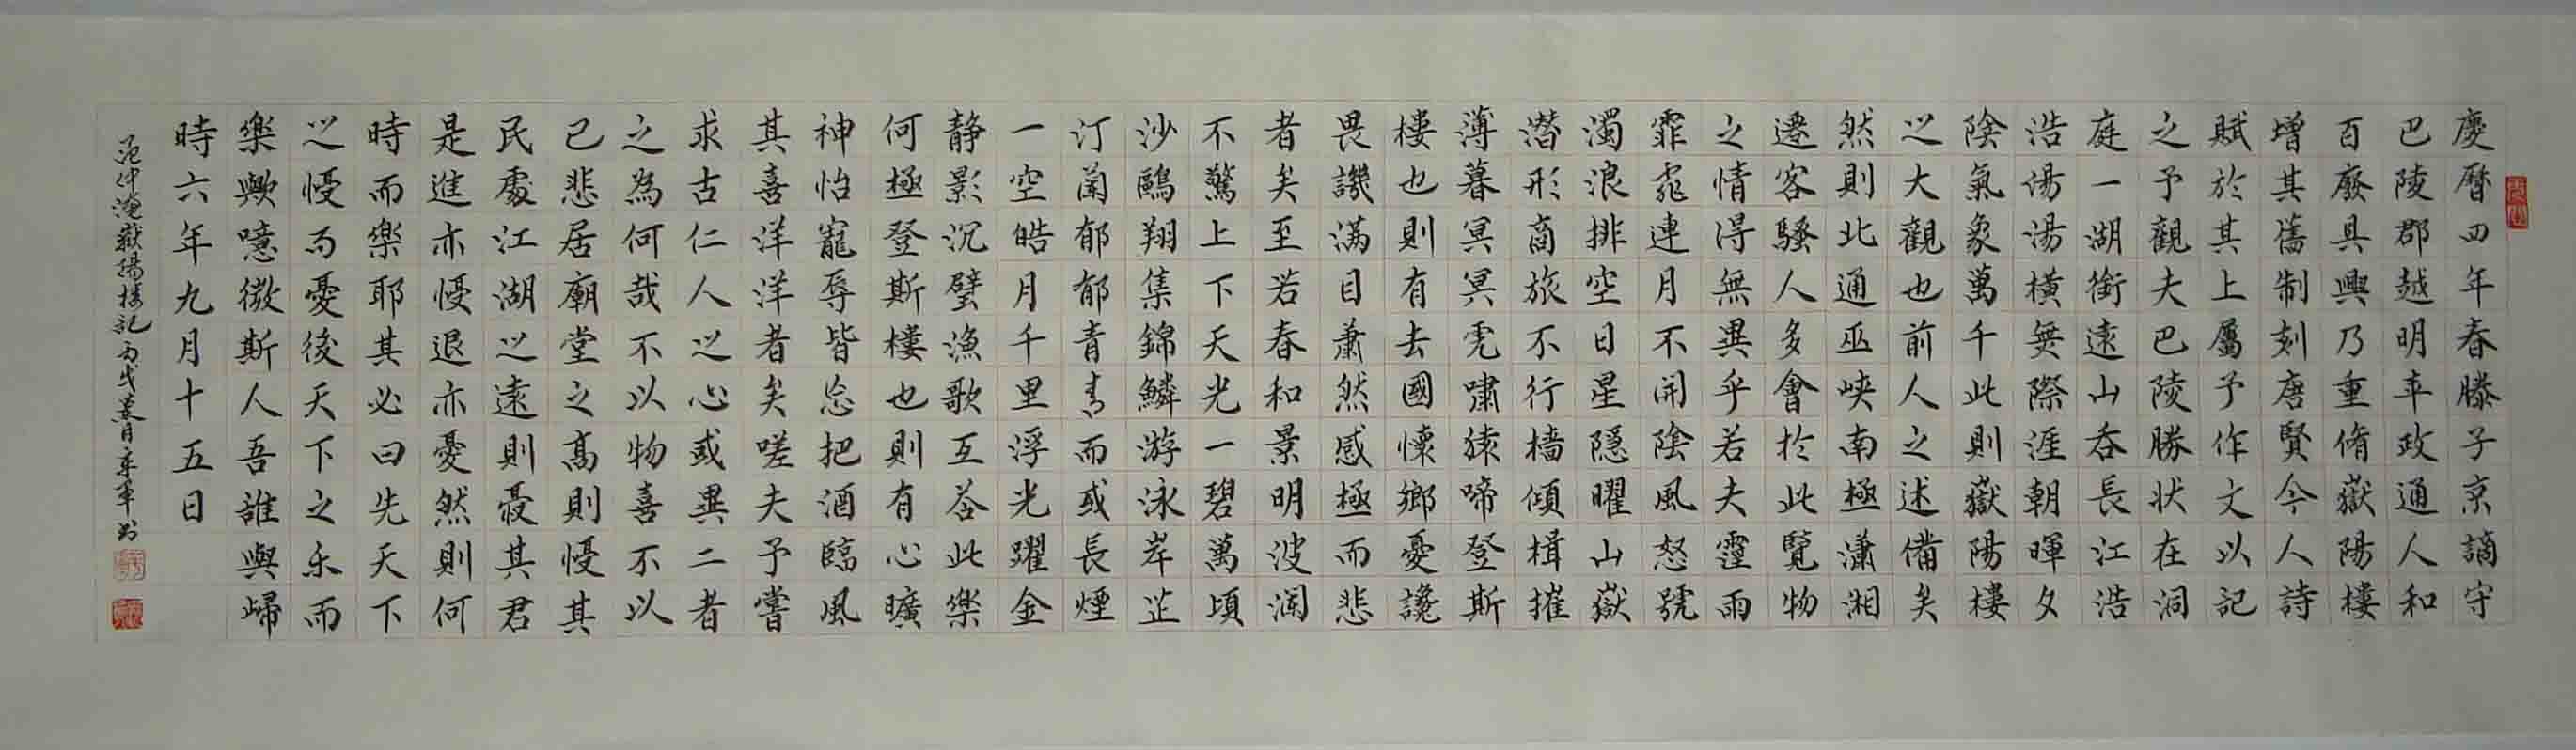 慶曆四年春滕子京謫守
巴陵郡越明年政通人和
百廢具興乃重脩嶽陽樓
增其舊制刻唐賢今人詩
賦於其上屬予作文以記
之予觀夫巴陵勝狀在洞
庭一湖銜遠山吞長江浩
浩湯湯橫無際涯朝暉夕
陰氣象萬千此則嶽陽樓
之大觀也前人之述備矣
然則北通巫峽南極瀟湘
遷客騷人多會於此覽物
之情得無異乎若夫霪雨
霏霏連月不開陰風怒號
濁浪排空日星隱曜山嶽
潛形商旅不行檣傾楫摧
薄暮冥冥虎嘯猿啼登斯
樓也則有去國懷鄉憂讒
畏譏滿目蕭然感極而悲
者矣至若春和景明波瀾
不驚上下天光一碧萬頃
沙鷗翔集錦鱗游泳岸芷
汀蘭郁郁青青而或長煙
一空皓月千里浮光躍金
靜影沉璧漁歌互答此樂
何極登斯樓也則有心曠
神怡寵辱皆忘把酒臨風
其喜洋洋者矣嗟夫予嘗
求古仁人之心或異二者
之為何哉不以物喜不以
己悲居廟堂之高則憂其
民處江湖之遠則憂其君
是進亦憂退亦憂然則何
時而樂耶其必曰先天下
之憂而憂後天下之乐而
樂歟噫微斯人吾誰與歸
時六年九月十五日
范仲淹嶽陽樓記 丙戌